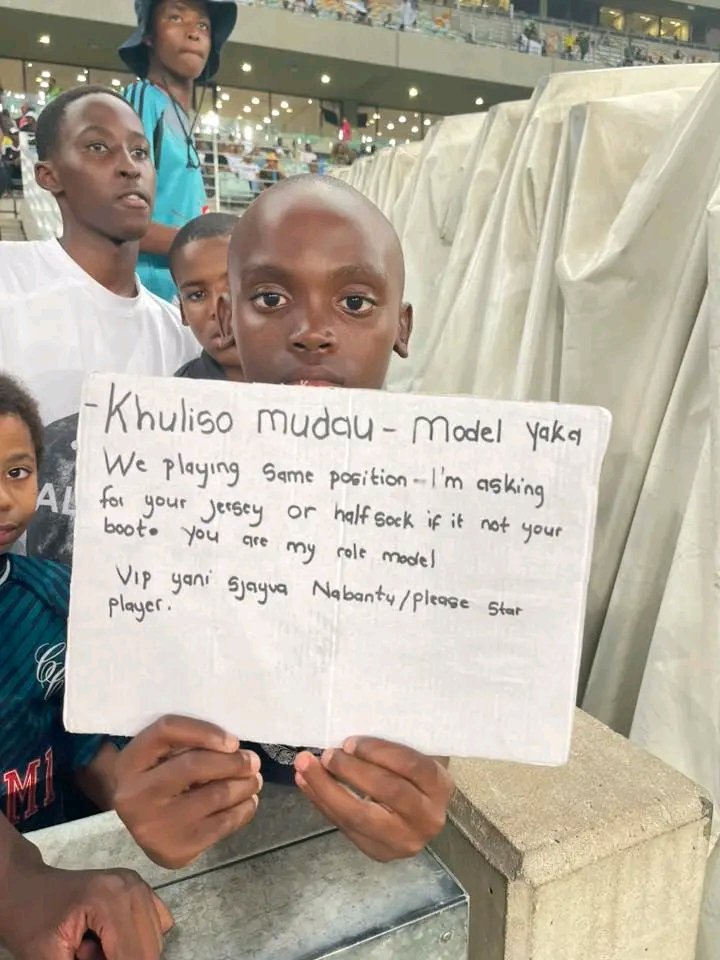 - Khuliso mudau - Model yaka
We playing same position - I'm asking
for your jersey or half sock if it not your
boot. You are my role model
VIP yani sjayva Nabantu/please star
player.
AL
MI